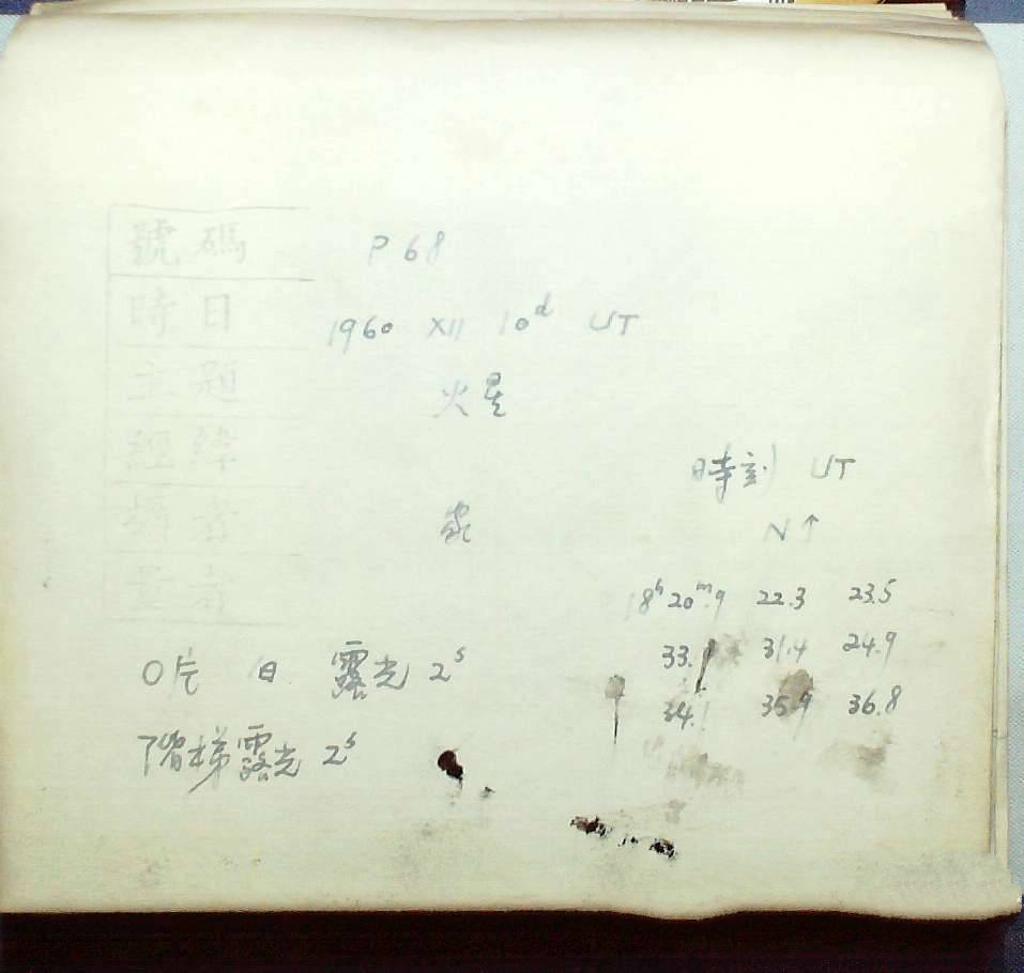 號碼 P 68
時日 1960 XII 10d UT
主題 火星
經緯
時刻 UT
N↑
18h20m.9 22.3 23.5
33.9 31.4 24.9
34.1 35.9 36.8
O片 日 露光 2s
階梯露光 2s